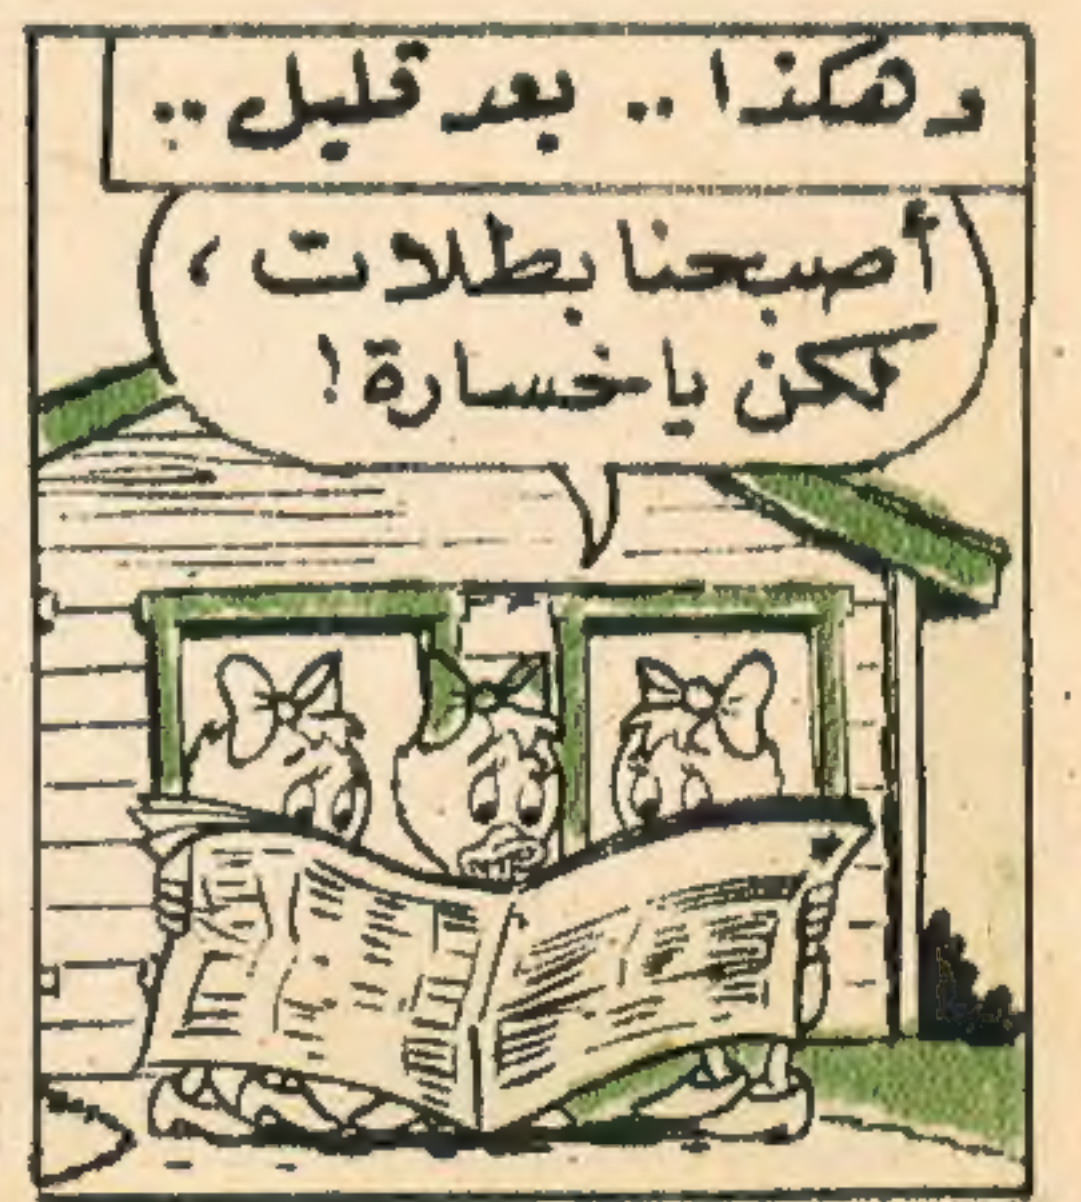 وهكذا .. بعد قليل ..
أصبحنا بطلات ،
لكن يا خسارة !